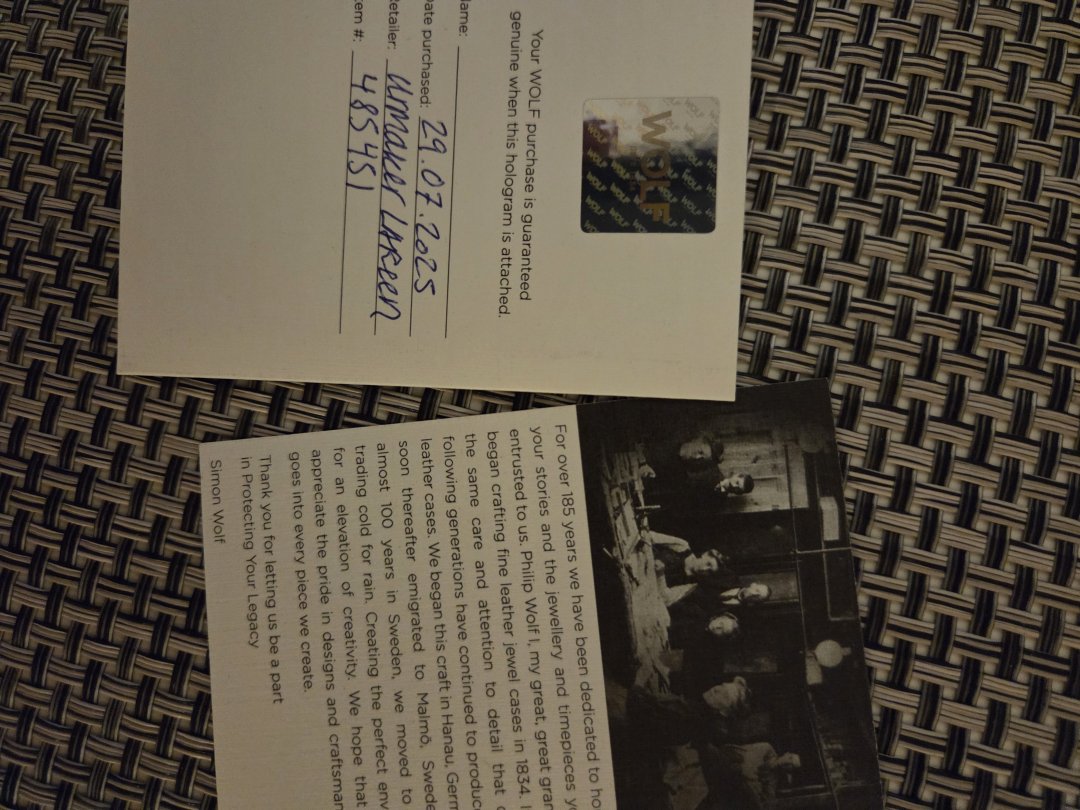 WOLF
Your WOLF purchase is guaranteed
genuine when this hologram is attached.
Name:
Date purchased: 29.07.2025
Retailer: Urmaker Lakeen
Item #: 485451
For over 185 years we have been dedicated to
your stories and the jewellery and timepieces
entrusted to us. Philip Wolf I, my great, great
began crafting fine leather jewel cases in 1834.
the same care and attention to detail that
following generations have continued to
leather cases. We began this craft in Hanau,
soon thereafter emigrated to Malmö,
almost 100 years in Sweden, we moved to
trading cold for rain. Creating the perfect
for an elevation of creativity. We hope that
appreciate the pride in designs and
goes into every piece we create.
Thank you for letting us be a part
in Protecting Your Legacy
Simon Wolf